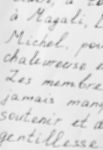 à Magali, L
Michel, pour
chaleureuse
Les membre
jamais manq
soutenir et d
gentillesse